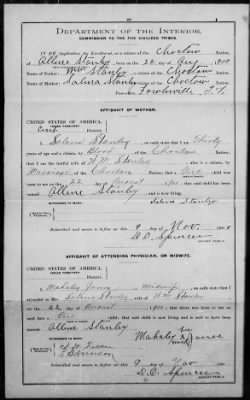 DEPARTMENT OF THE INTERIOR,
COMMISSION TO THE FIVE CIVILIZED TRIBES.
IN RE Application for Enrollment, as a citizen of the Choctaw Nation,
of Allene Stanley, born on the 22 day of Aug, 1900
Name of Father: Wm Stanley a citizen of the Choctaw Nation.
Name of Mother: Salina Stanley a citizen of the Choctaw Nation.
Post-office
AFFIDAVIT OF MOTHER.
UNITED STATES OF AMERICA,
INDIAN TERRITORY,
Cent District.
I, Salina Stanley, on oath state that I am Thirty
years of age and a citizen, by Blood, of the Choctaw Nation;
that I am the lawful wife of W.W. Stanley, who is a citizen, by
Marriage, of the Choctaw Nation; that a Girl child was
born to me on the 22 day of August, 1900, that said child has been
named Allene Stanley, and is now living.
Salina Stanley
Subscribed and sworn to before me this 9 day of Nov 190
D. C. Spencer
NOTARY PUBLIC.
AFFIDAVIT OF ATTENDING PHYSICIAN, OR MIDWIFE.
UNITED STATES OF AMERICA,
INDIAN TERRITORY,
District.
I, Mahaley Jones, a midwife, on oath state that I
attended on Mrs. Salina Stanley, wife of Wm Stanley
on the 22 day of August, 1900, that there was born to her on said date a
Girl child; that said child is now living and is said to have been
named Allene Stanley
Mahaley Jones
Subscribed and sworn to before me this 9 day of Nov 190
D. C. Spencer
NOTARY PUBLIC.